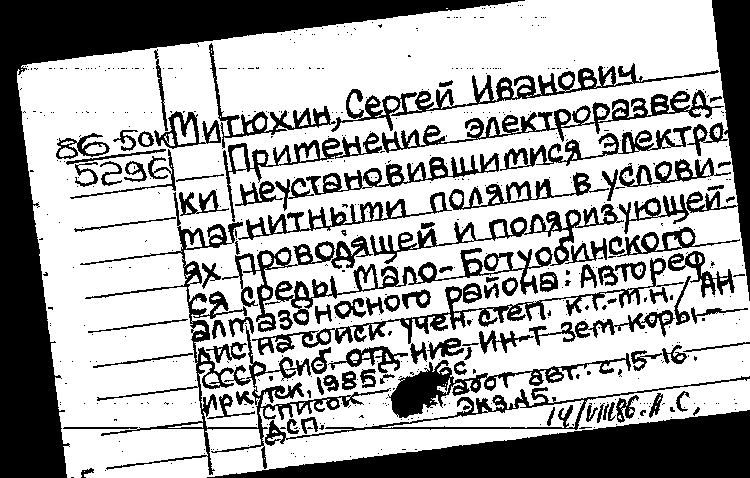 86-50к
5296
Митюхин, Сергей Иванович.
Применение электроразвед-
ки неустановившимися электро-
магнитными полями в услови-
ях проводящей и поляризующей-
ся среды Мало-Ботуобинского
алмазоносного района: Автореф.
дис. на соиск. учен. степ. к.г.-м.н. / АН
СССР. Сиб. отд-ние, Ин-т зем. коры.-
Иркутск, 1985.- с.
Список работ авт.: с. 15-16.
ДСП. Экз. №5.
14/VIII86. Н.С.